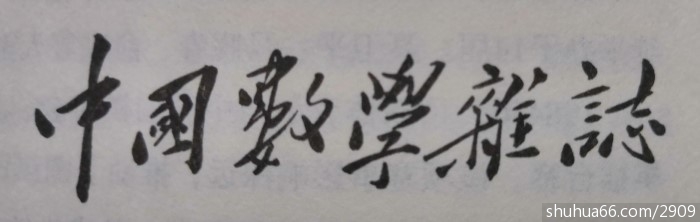 中國數學雜誌
shuhua66.com/2909